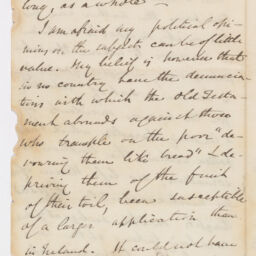 long, as a whole —
I am afraid my political opi-
nions on the subject can be of little
value. My belief is however that
in no country have the denuncia-
tions with which the Old Testa-
ment abounds against those
who trample on the poor "de-
vouring them like bread" & de-
priving them of the fruit
of their toil, been susceptible
of a larger application than
in Ireland. It could not have